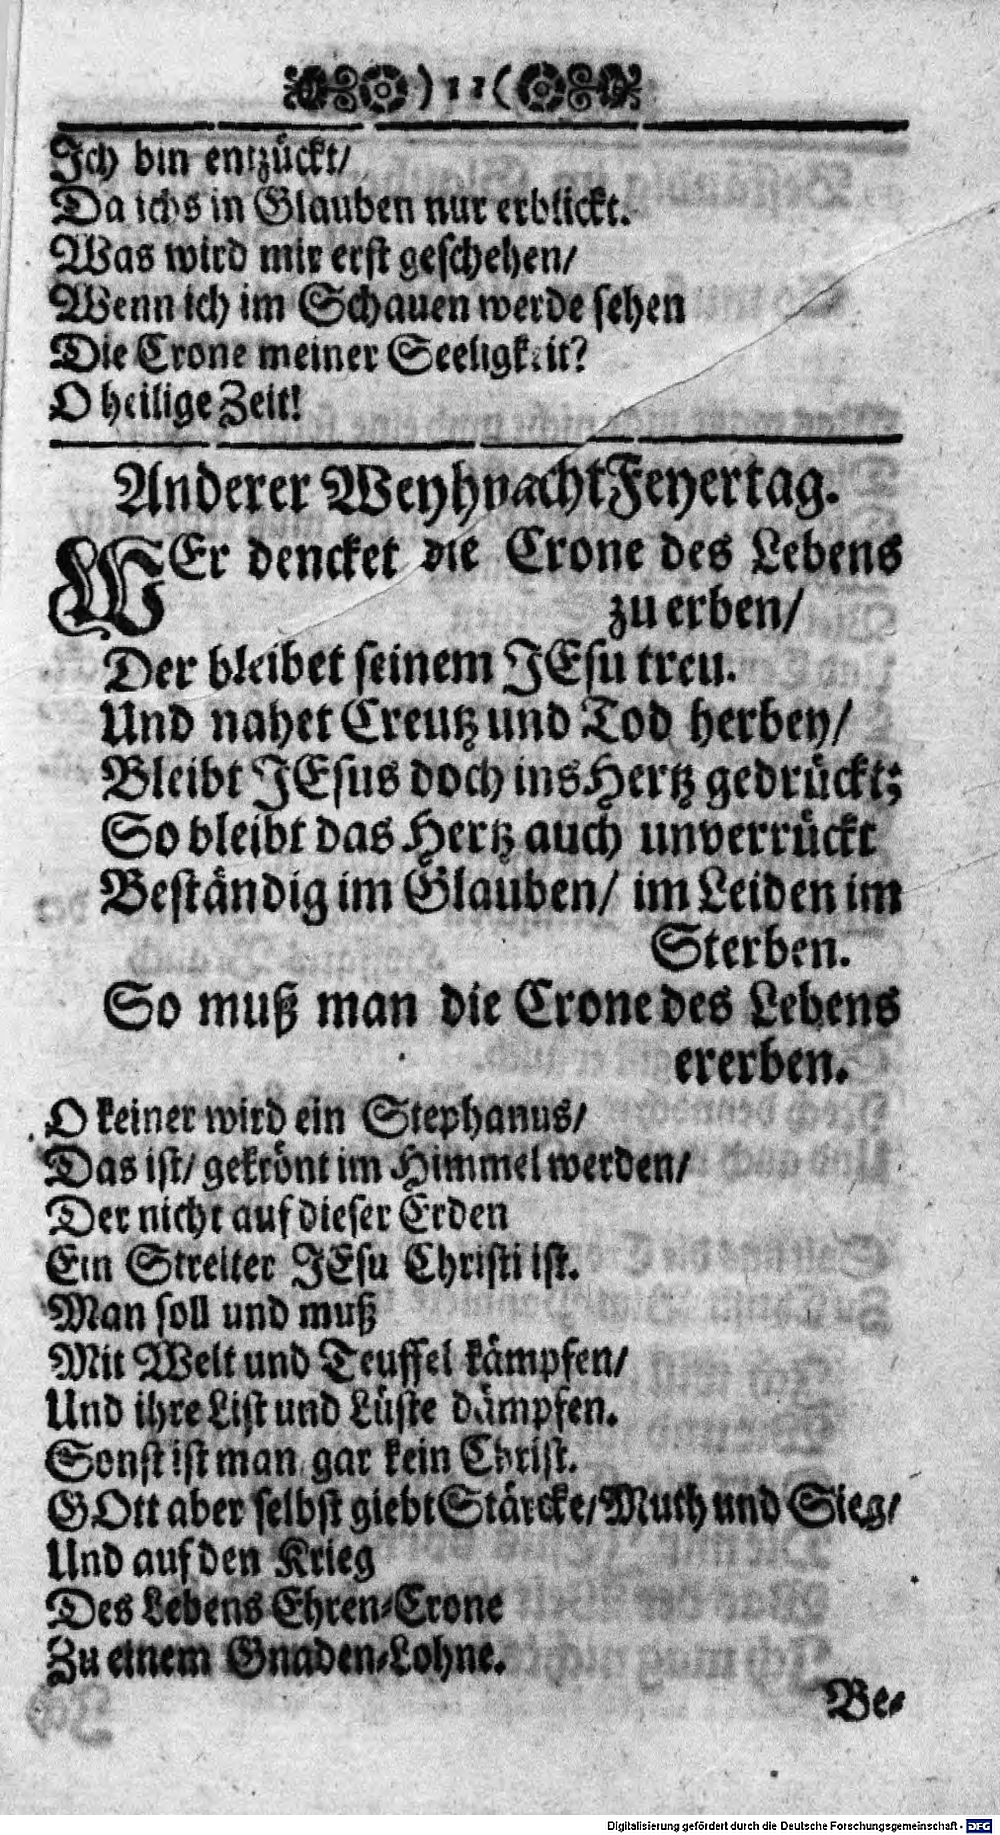 ) 11 (
Ich bin entzückt/
Da ichs in Glauben nur erblickt.
Was wird mir erst geschehen/
Wenn ich im Schauen werde sehen
Die Crone meiner Seeligkeit?
O heilige Zeit!
Anderer WeyhnachtFeyertag.
WEr dencket die Crone des Lebens
zu erben/
Der bleibet seinem JEsu treu.
Und nahet Creutz und Tod herbey/
Bleibt JEsus doch ins Hertz gedrückt;
So bleibt das Hertz auch unverrückt
Beständig im Glauben/ im Leiden im
Sterben.
So muß man die Crone des Lebens
ererben.
O keiner wird ein Stephanus/
Das ist/ gekrönt im Himmel werden/
Der nicht auf dieser Erden
Ein Streiter JEsu Christi ist.
Man soll und muß
Mit Welt und Teuffel kämpfen/
Und ihre List und Lüste dämpfen.
Sonst ist man gar kein Christ.
GOtt aber selbst giebt Stärcke/ Muth und Sieg/
Und auf den Krieg
Des Lebens Ehren-Crone
Zu einem Gnaden-Lohne.
Be-
Digitalisierung gefördert durch die Deutsche Forschungsgemeinschaft - DFG